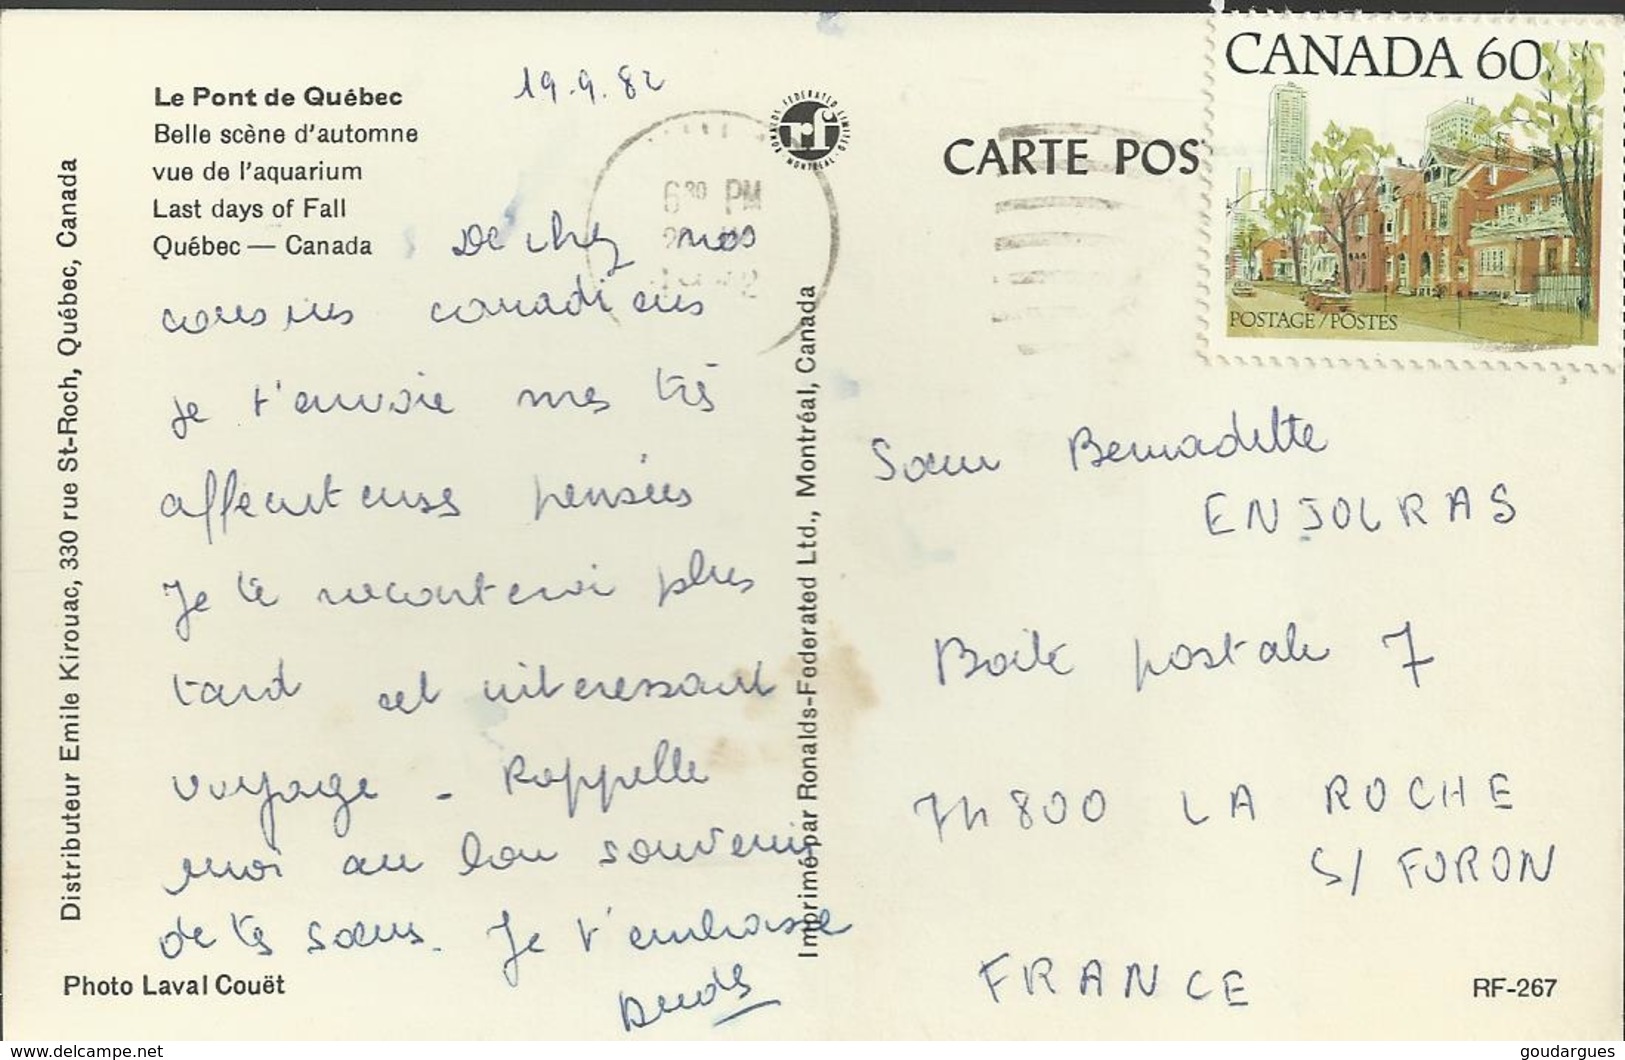 Le Pont de Québec
Belle scène d'automne
vue de l'aquarium
Last days of Fall
Québec — Canada
19.9.82
De chez nos
cousins canadiens
je t'envoie mes très
affectueuses pensées
Je te raconterai plus
tard cet intéressant
voyage - Rappelle
moi au bon souvenir
de tes sœurs. Je t'embrasse
Distributeur Emile Kirouac, 330 rue St-Roch, Québec, Canada
Photo Laval Couët
Imprimé par Ronalds-Federated Ltd., Montréal, Canada
RONALDS FEDERATED LIMITED
rf
MONTREAL
6 30 PM
CARTE POS
CANADA 60
POSTAGE/POSTES
Sœur Bernadette
ENJOLRAS
Boite postale 7
74800 LA ROCHE
S/ FORON
FRANCE
RF-267
https://www.delcampe.net
goudargues